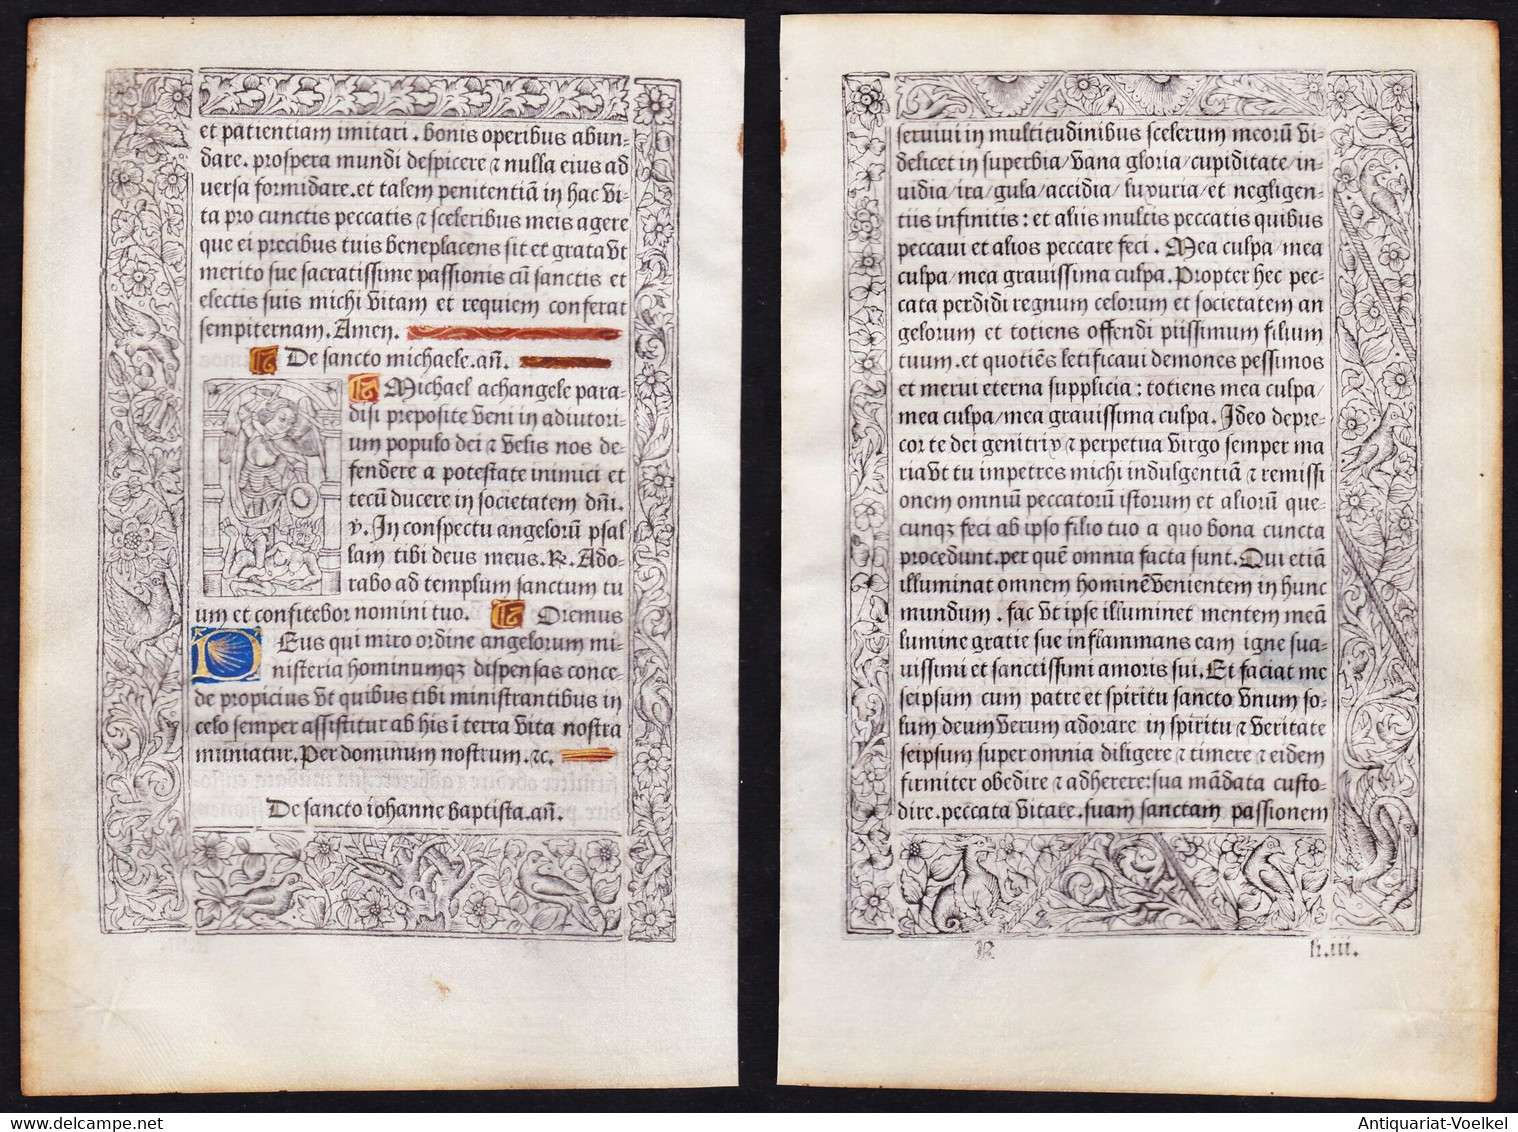 et patientiam imitari. bonis operibus abun-
dare. prospera mundi despicere ⁊ nulla eius ad
versa formidare. et talem penitentiā in hac vi-
ta pro cunctis peccatis ⁊ sceleribus meis agere
que ei precibus tuis beneplacens sit et grata vt
merito sue sacratissime passionis cū sanctis et
electis suis michi vitam et requiem conferat
sempiternam. Amen.
De sancto michaele. añ.
Michael achangele para-
disi preposite veni in adiutori-
um populo dei ⁊ velis nos de-
fendere a potestate inimici et
tecū ducere in societatem dñi.
v. In conspectu angelorū psal
lam tibi deus meus. R. Ado-
rabo ad templum sanctum tu
um et confitebor nomini tuo. Oremus
DEus qui miro ordine angelorum mi-
nisteria hominumqꝫ dispensas conce-
de propicius vt quibus tibi ministrantibus in
celo semper assistitur ab his ī terra vita nostra
muniatur. Per dominum nostrum. ⁊c.
De sancto iohanne baptista. añ.
seruiui in multitudinibus scelerum meorū vi-
delicet in superbia/vana gloria/cupiditate/in-
uidia/ira/gula/accidia/luxuria/et negligen-
tiis infinitis: et aliis multis peccatis quibus
peccaui et alios peccare feci. Mea culpa/mea
culpa/mea grauissima culpa. Propter hec pec-
cata perdidi regnum celorum et societatem an
gelorum et totiens offendi piissimum filium
tuum. et quotiēs letificaui demones pessimos
et merui eterna supplicia: totiens mea culpa/
mea culpa/mea grauissima culpa. Ideo depre-
cor te dei genitrix ⁊ perpetua virgo semper ma
ria vt tu impetres michi indulgentiā ⁊ remissi
onem omniū peccatorū istorum et aliorū que-
cunqꝫ feci ab ipso filio tuo a quo bona cuncta
procedunt. per quē omnia facta sunt. Qui etiā
illuminat omnem hominē venientem in hunc
mundum. fac vt ipse illuminet mentem meā
lumine gratie sue inflammans eam igne sua-
uissimi et sanctissimi amoris sui. Et faciat me
seipsum cum patre et spiritu sancto vnum so-
lum deum verum adorare in spiritu ⁊ veritate
seipsum super omnia diligere ⁊ timere ⁊ eidem
firmiter obedire ⁊ adherere: sua mādata custo-
dire. peccata vitare. suam sanctam passionem
R h.iii.
Antiquariat-Voelkel
delcampe.net
Antiquariat-Voelkel